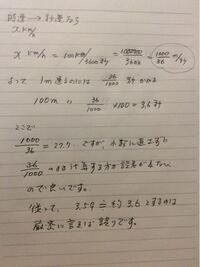 時速 → 秒速なら
x km/h
x km/h = 100km/3600秒 = 100000/3600 = 1000/36 m/秒
よって 1m進むのには 36/1000 秒かかる
100m 〃 36/1000 ×100 = 3.6秒
ここで
1000/36 = 27.7… ですが、小数に直さずに
36/1000 のまま計算する方が誤差が出ない
ので良いです。
従って、3.59 ≒ 約3.6とするのは
厳密に言えば誤りです。